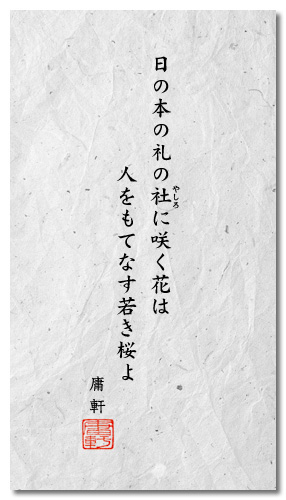 日の本の礼の社に咲く花は
やしろ
人をもてなす若き桜よ
庸軒